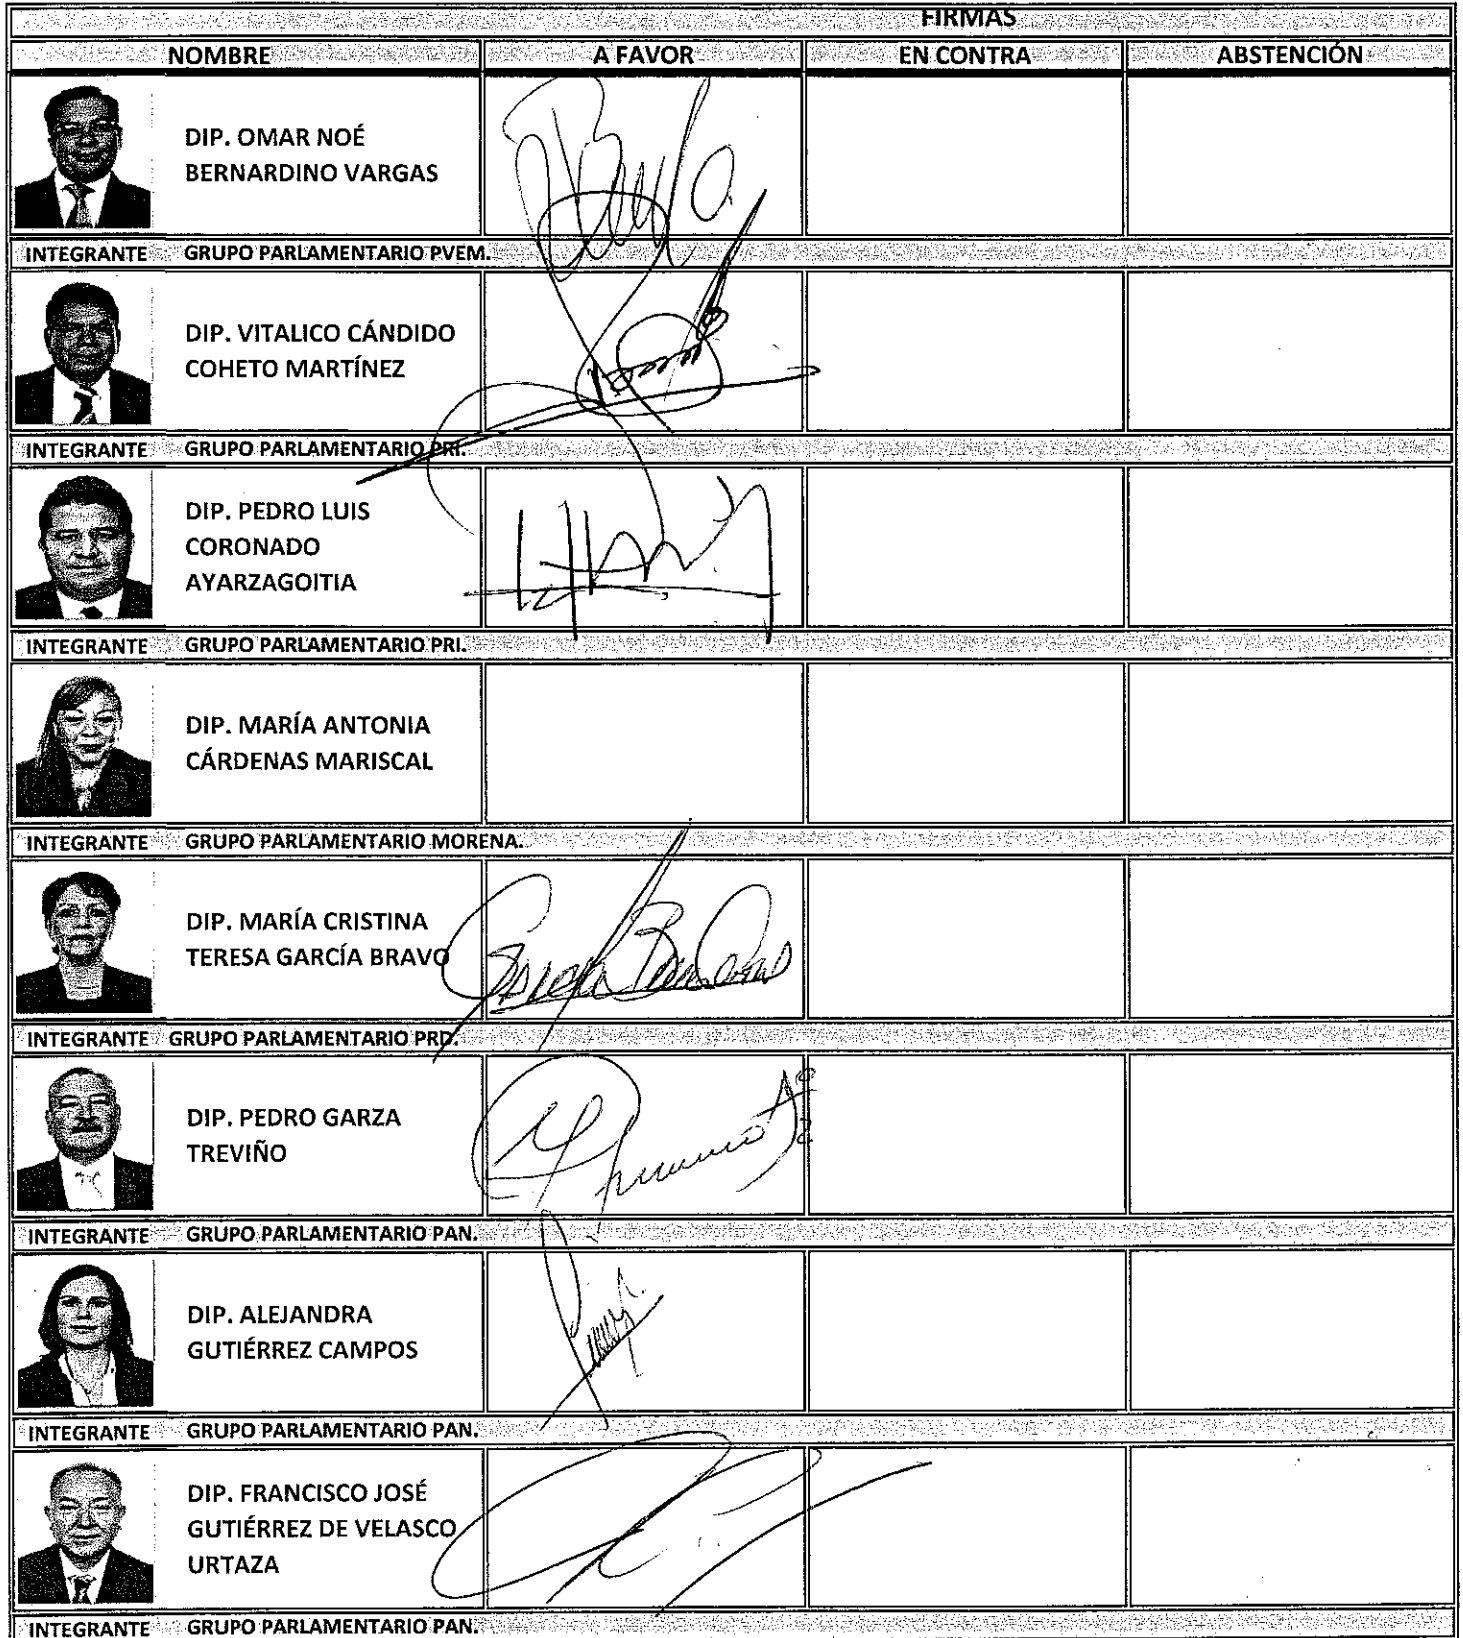 FIRMAS
NOMBRE A FAVOR EN CONTRA ABSTENCIÓN
DIP. OMAR NOÉ
BERNARDINO VARGAS
INTEGRANTE GRUPO PARLAMENTARIO PVEM.
DIP. VITALICO CÁNDIDO
COHETO MARTÍNEZ
INTEGRANTE GRUPO PARLAMENTARIO PRI.
DIP. PEDRO LUIS
CORONADO
AYARZAGOITIA
INTEGRANTE GRUPO PARLAMENTARIO PRI.
DIP. MARÍA ANTONIA
CÁRDENAS MARISCAL
INTEGRANTE GRUPO PARLAMENTARIO MORENA.
DIP. MARÍA CRISTINA
TERESA GARCÍA BRAVO
INTEGRANTE GRUPO PARLAMENTARIO PRD.
DIP. PEDRO GARZA
TREVIÑO
INTEGRANTE GRUPO PARLAMENTARIO PAN.
DIP. ALEJANDRA
GUTIÉRREZ CAMPOS
INTEGRANTE GRUPO PARLAMENTARIO PAN.
DIP. FRANCISCO JOSÉ
GUTIÉRREZ DE VELASCO
URTAZA
INTEGRANTE GRUPO PARLAMENTARIO PAN.